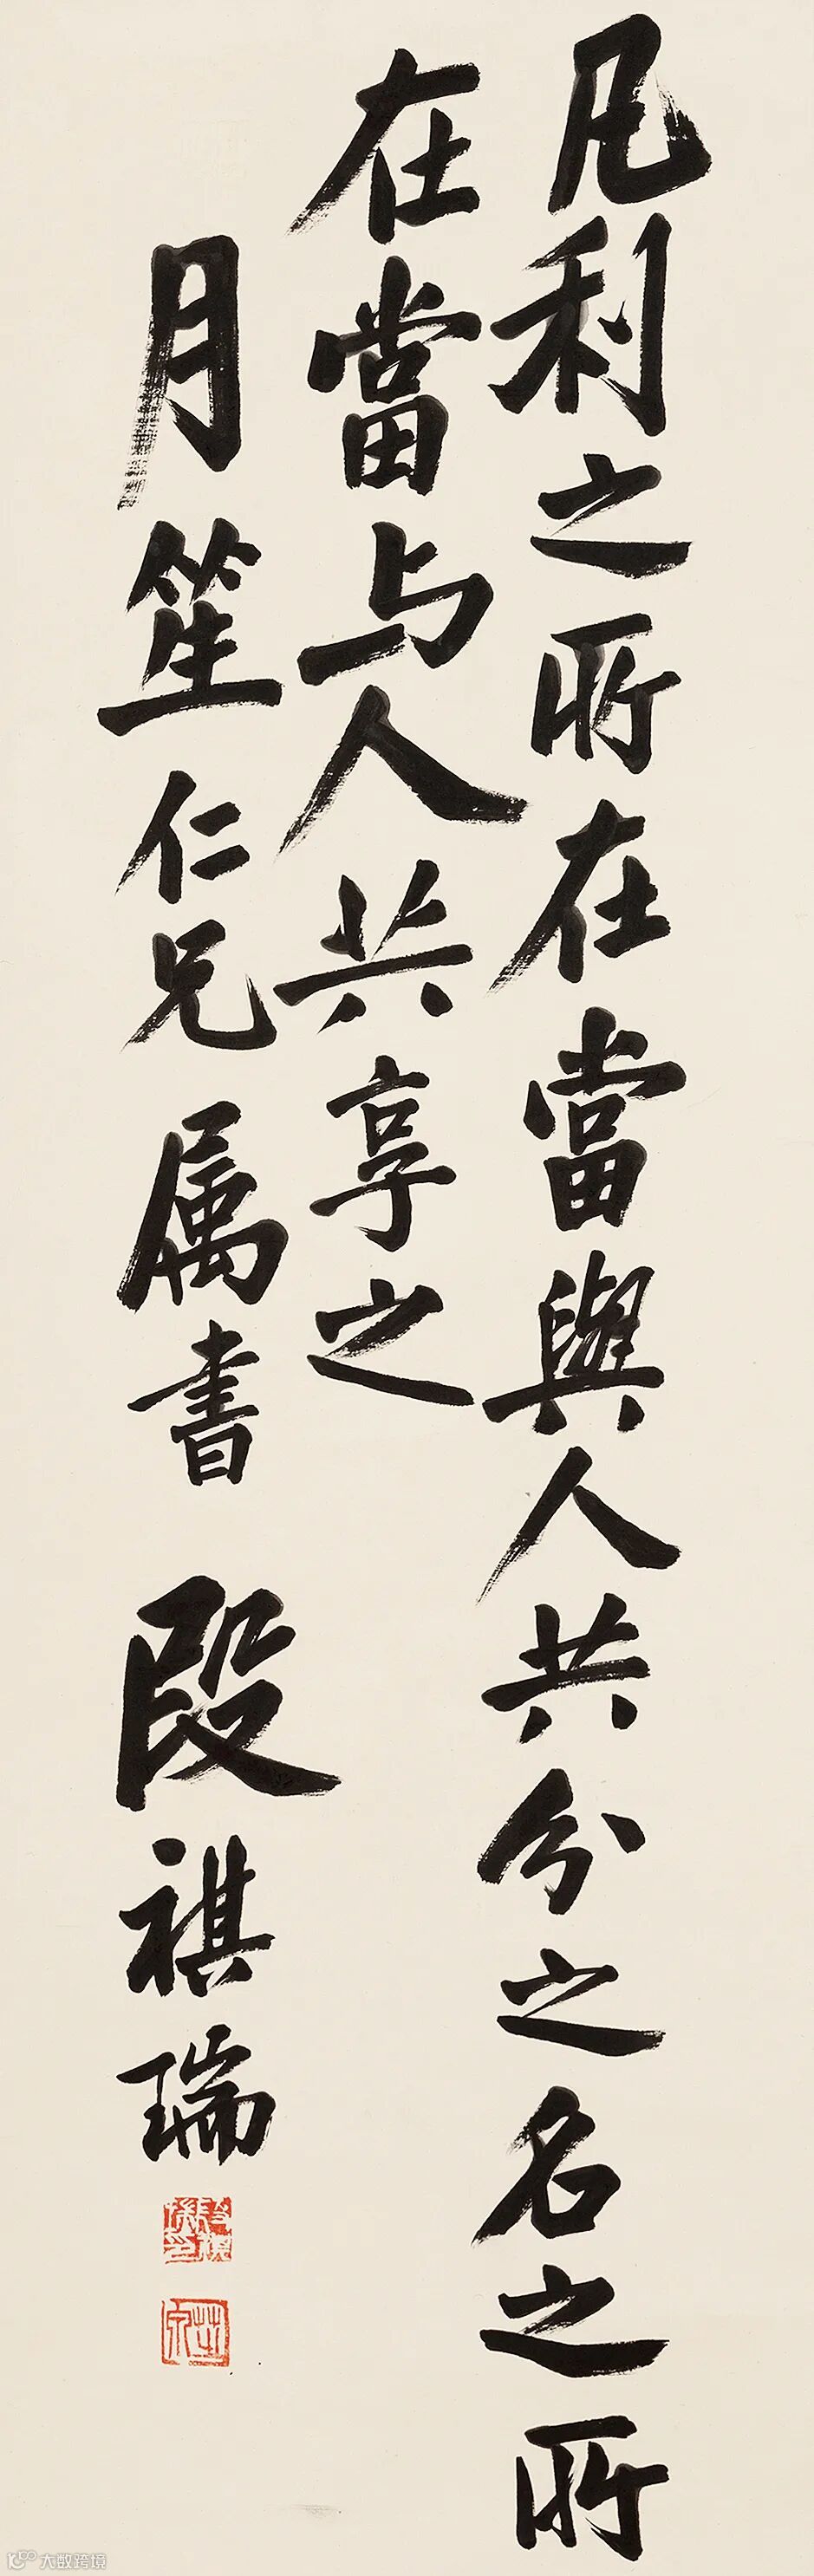 凡利之所在當與人共分之名之所
在當与人共享之
月笙仁兄属書 段祺瑞
芝泉
大数跨境